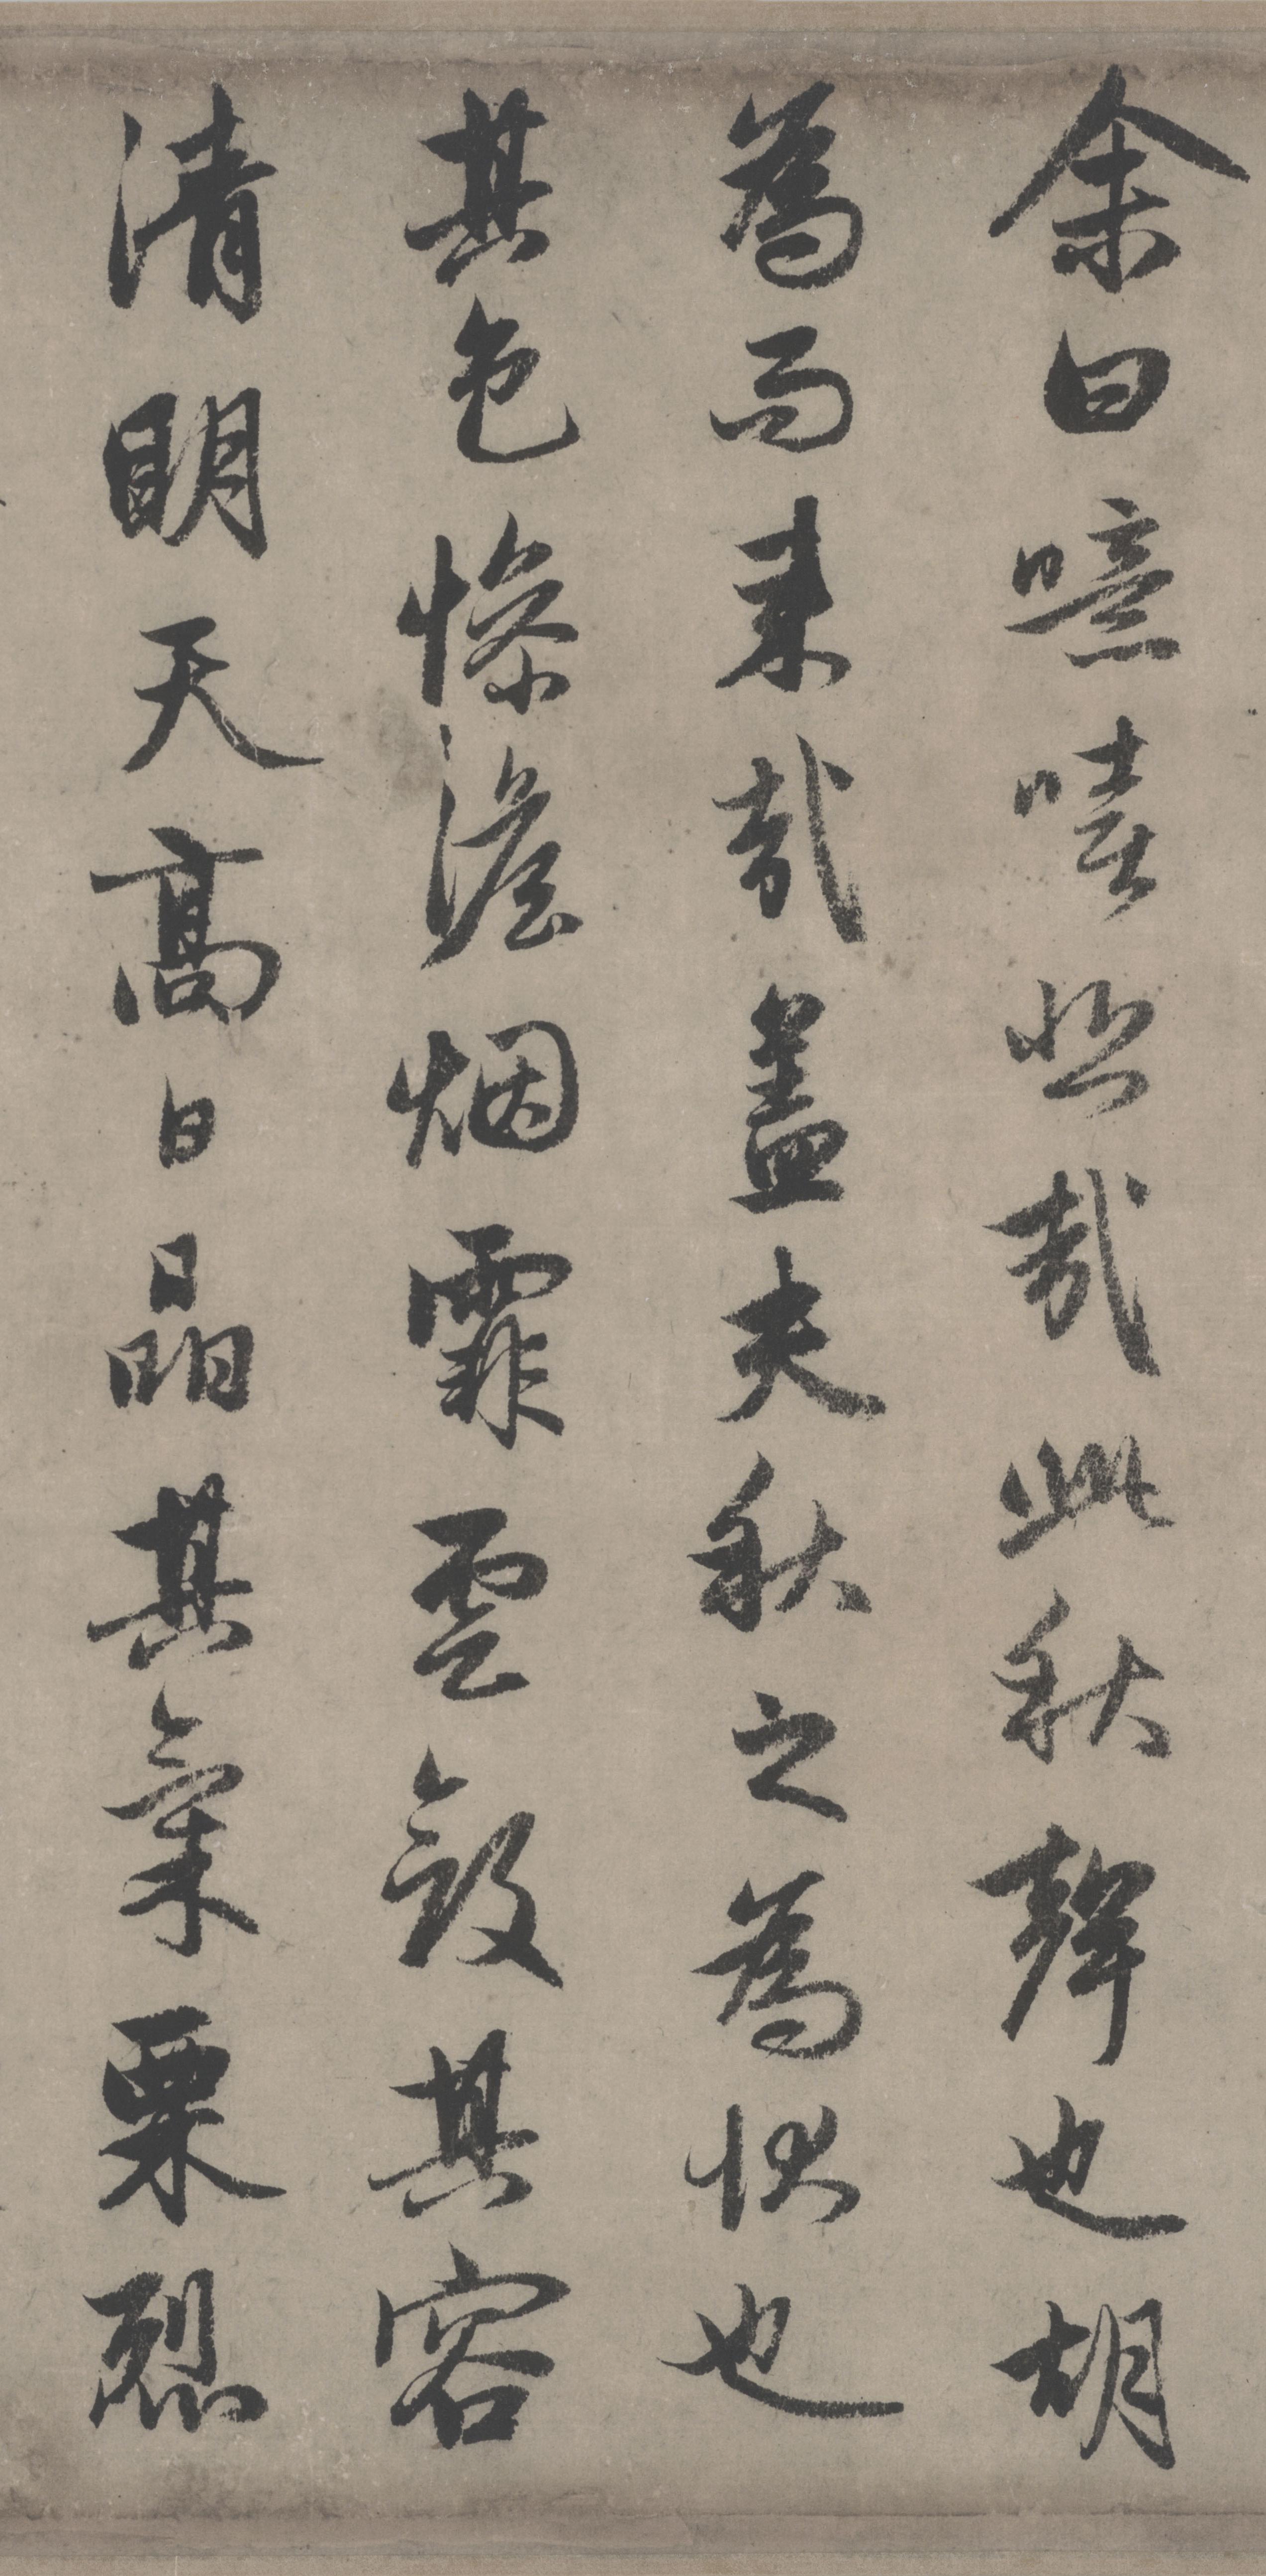 余曰噫嘻悲哉此秋聲也胡
為而來哉盖夫秋之為狀也
其色慘澹烟霏雲斂其容
清明天高日晶其氣栗烈